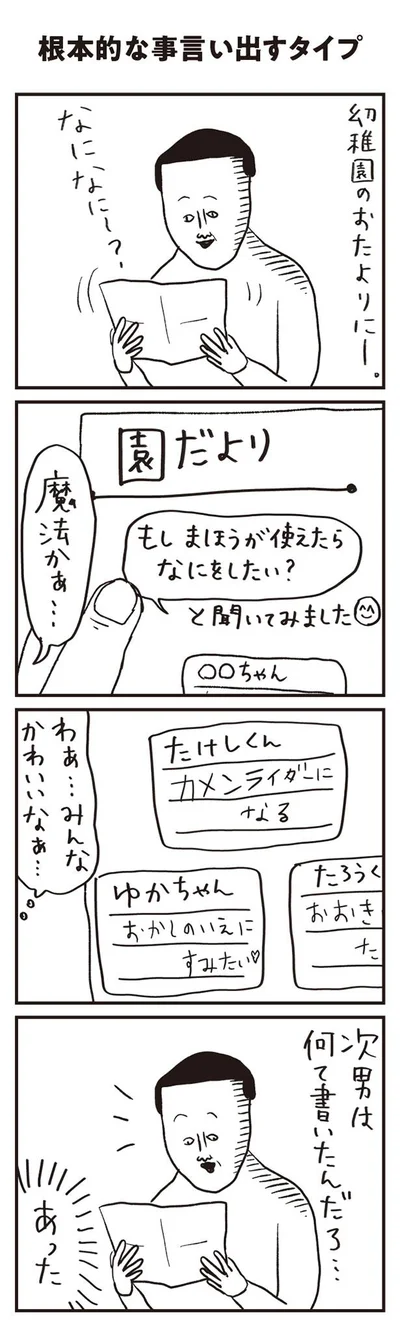 根本的な事言い出すタイプ
幼稚園のおたよりにー。
なになにー?
園だより
もし まほうが使えたら
なにをしたい?
と聞いてみました
魔法かぁ…
〇〇ちゃん
たけしくん
カメンライダーに
なる
わぁ…みんな
かわいいなぁ…
ゆかちゃん
おかしのいえに
すみたい♡
たろうく
おおき
た
次男は
何て書いたんだろ…
あった